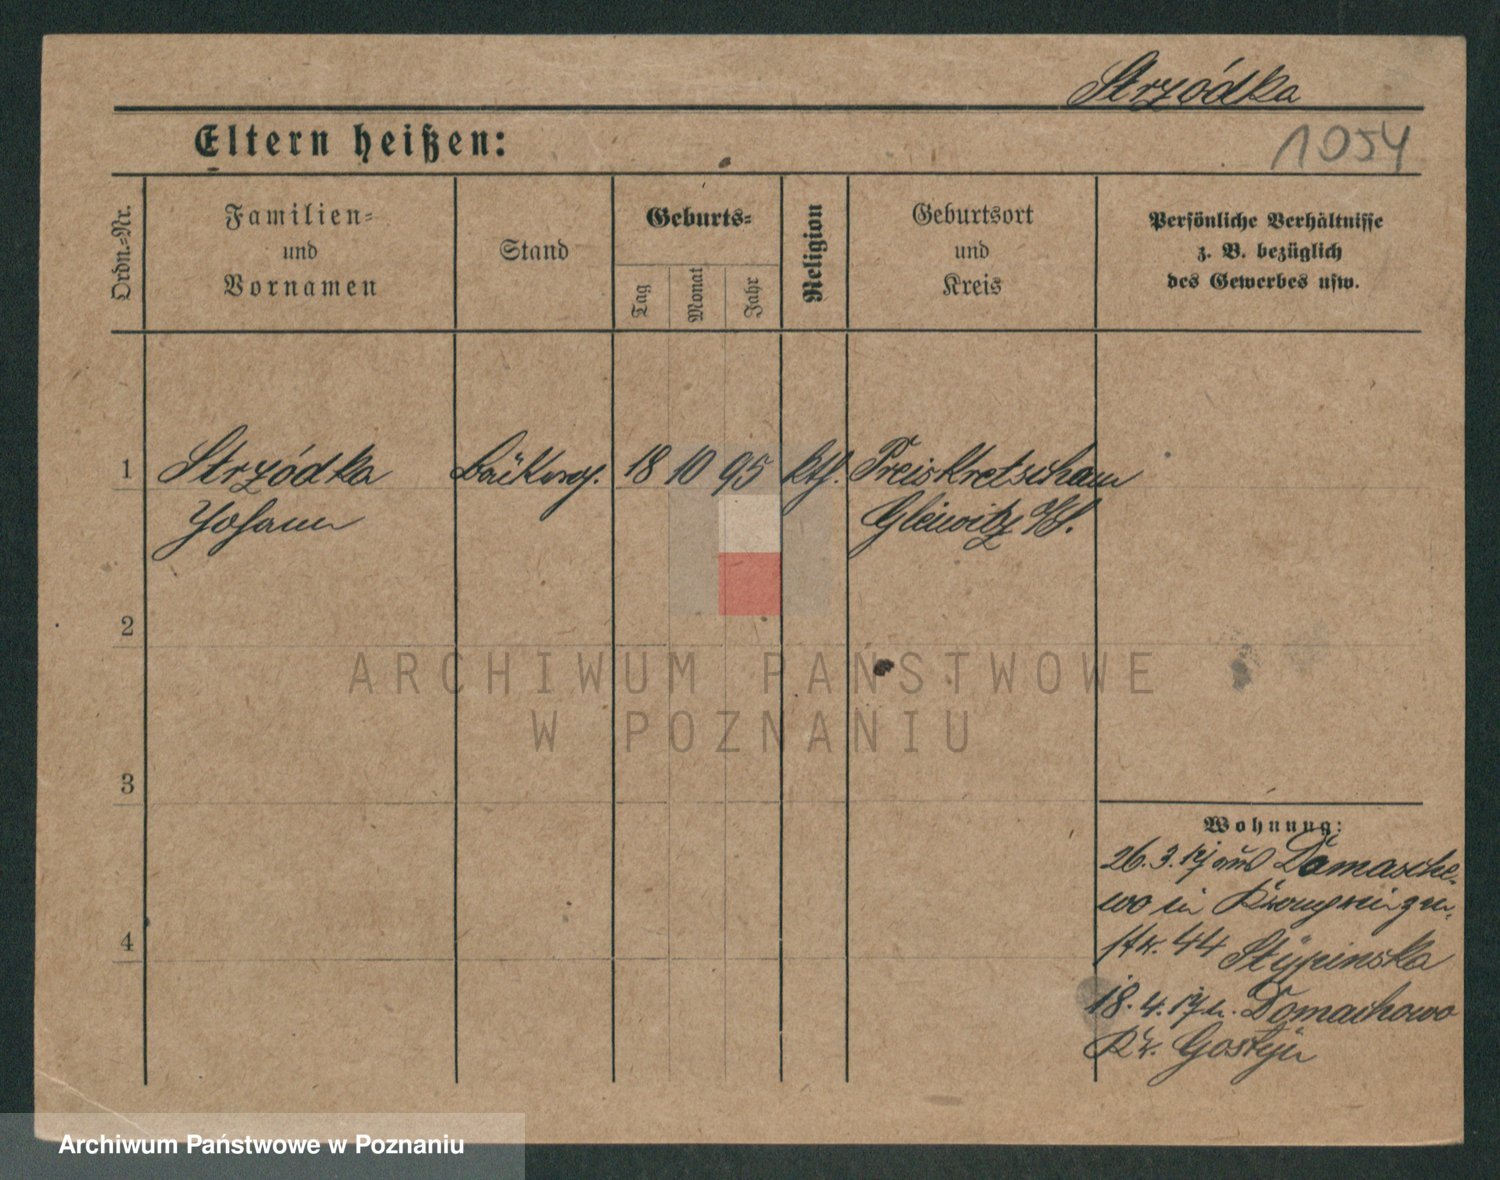 Strzódka
Eltern heißen:
1054
Ordn.-Nr.
Familien-
und
Vornamen
Stand
Geburts-
Tag
Monat
Jahr
Religion
Geburtsort
und
Kreis
Persönliche Verhältnisse
z. B. bezüglich
des Gewerbes usw.
1
Strzódka
Johann
Bäckerg.
18 10 95
kth.
Preiskretscham
Gleiwitz
2
3
4
Wohnung:
26.3.17 aus Domasche-
wo in
44
18.4.17 n. Domachowo
Kr. Gostyn
ARCHIWUM PAŃSTWOWE
W POZNANIU
Archiwum Państwowe w Poznaniu